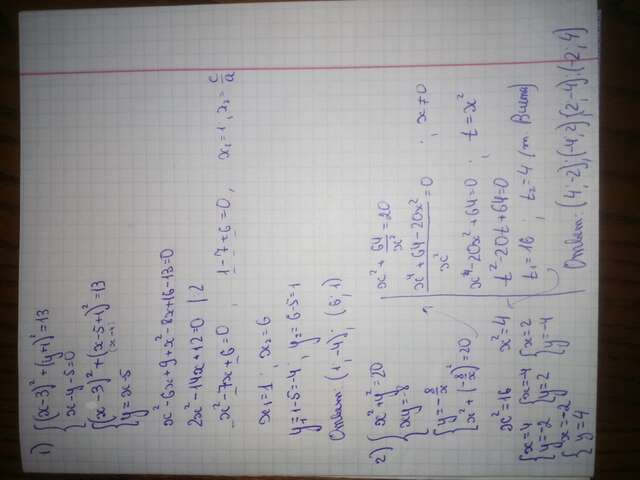 1) { (x-3)²+(y+1)²=13
x-y-5=0
{ (x-3)²+(x-5+1)²=13
(x-4)
y=x-5
x²-6x+9+x²-8x+16-13=0
2x²-14x+12=0 | 2
x²-7x+6=0 , 1-7+6=0, x₁=1, x₂=c/a
x₁=1 ; x₂=6
y₁=1-5=-4 ; y₂=6-5=1
Ответ: (1;-4); (6;1)
2) { x²+y²=20
xy=-8
{ y=-8/x
x²+(8/x)²=20
x²+64/x²=20
(x⁴+64-20x²)/x²=0 ; x≠0
x⁴-20x²+64=0 ; t=x²
t²-20t+64=0
t₁=16 ; t₂=4 (т. Виета)
x²=16 x²=4
{ x=4 { x=-4 { x=2
y=-2 y=2 y=-4
{ x=-2
y=4
Ответ: (4;-2);(-4;2)(2;-4);(-2;4)